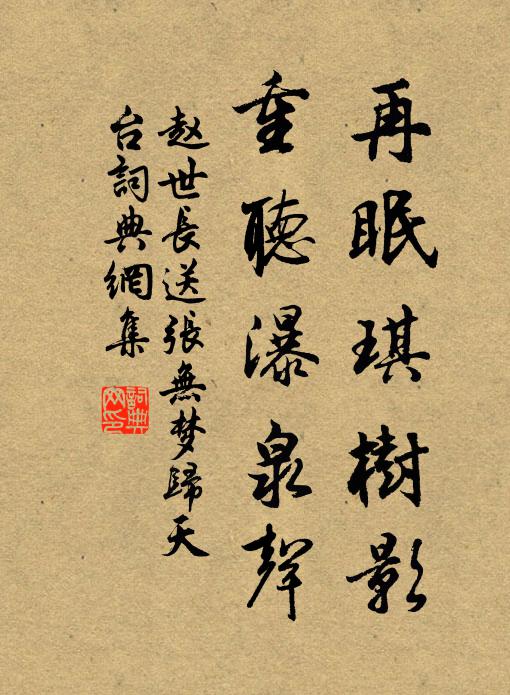 再眠琪樹影
重聽瀑泉聲
赵世長送張無梦歸天
台詞典網集
詞典
网印